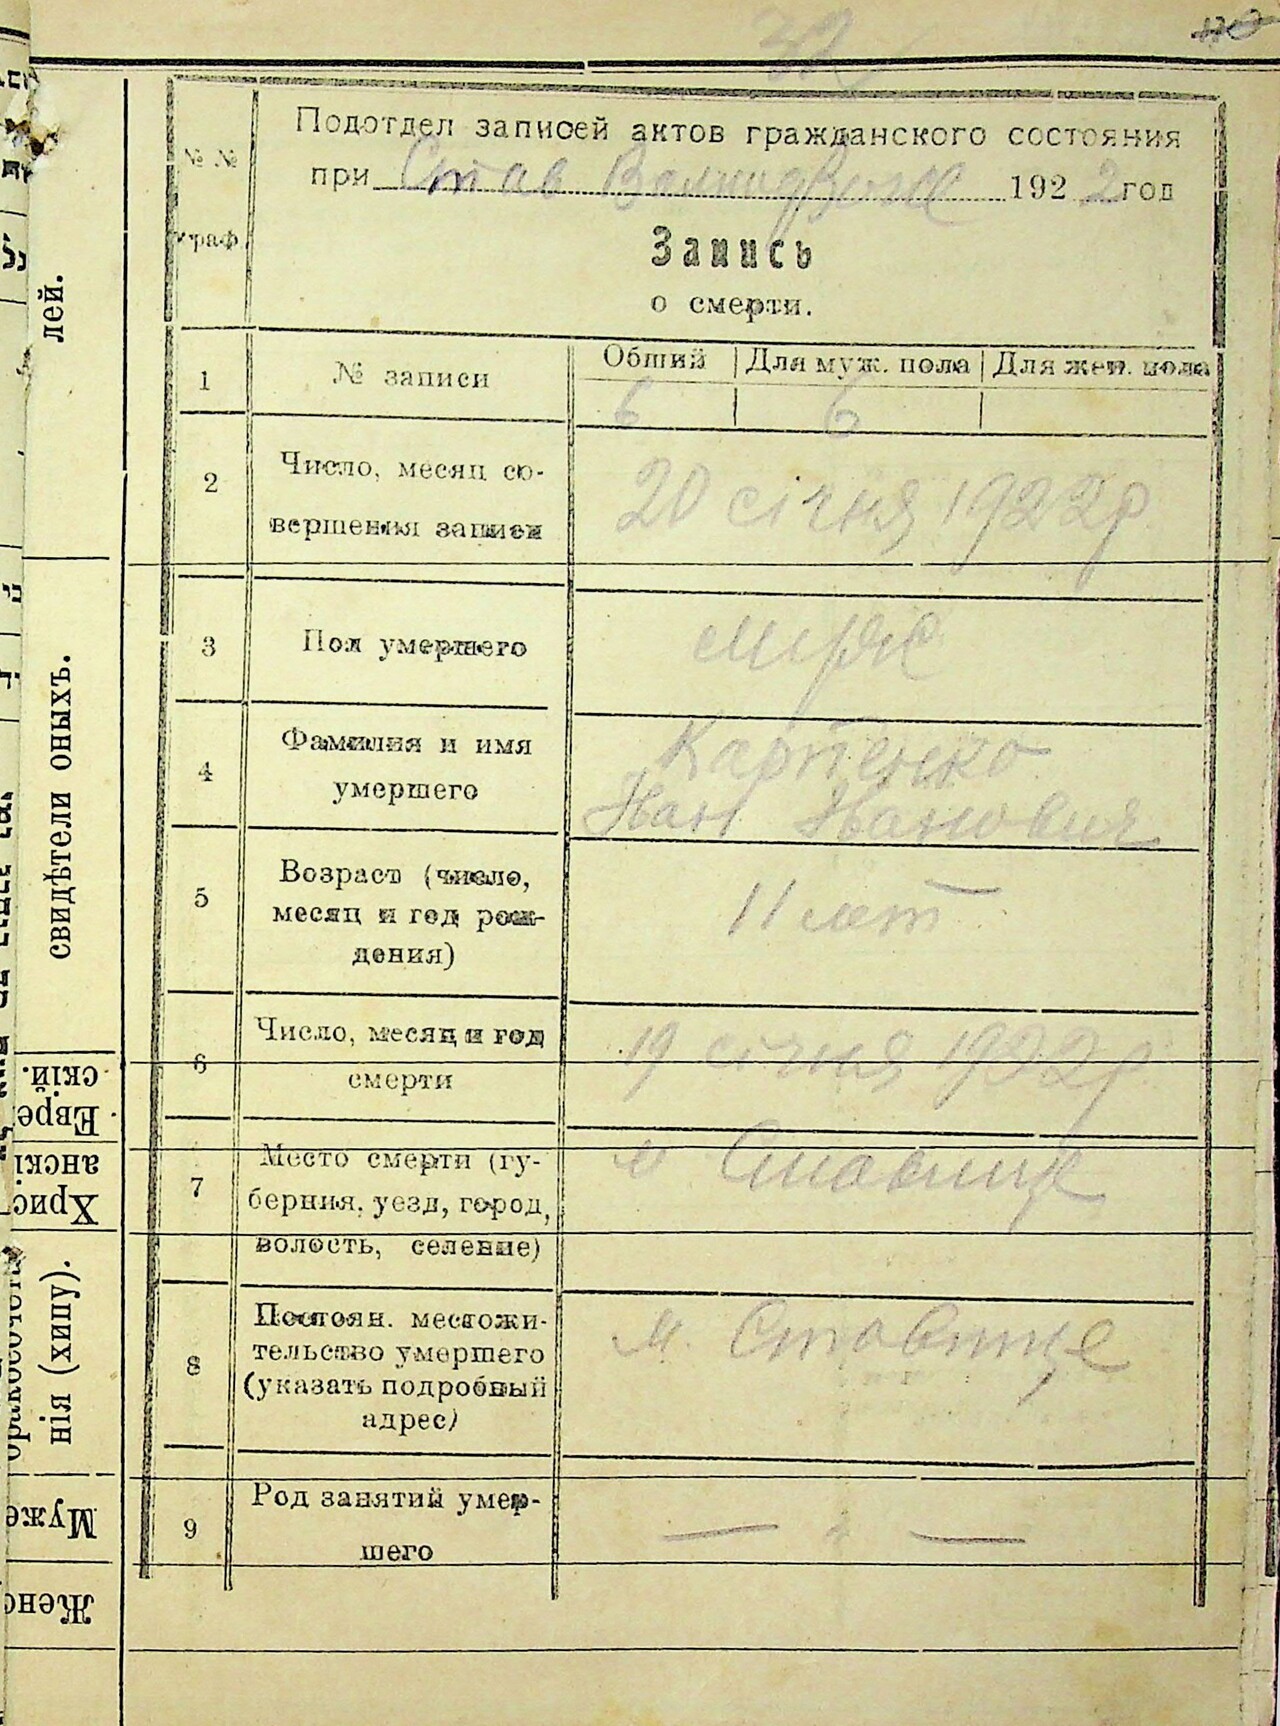 32
лей.
свидѣтели оныхъ.
скій.
Евре
анскі
Хрис
нія (хипу).
Муже
Женс
№ №
граф.
Подотдел записей актов гражданского состояния
при Став 1922 год
Запись
о смерти.
1 № записи Общий Для муж. пола Для жен. пола
6 6
2 Число, месяц со-
вершения записи
20 січня 1922 р
3 Пол умершего муж
4 Фамилия и имя
умершего
Карпенко
Иван Иванович
5 Возраст (число,
месяц и год рож-
дения)
11 лет
6 Число, месяц и год
смерти
19 січня 1922 р
7 Место смерти (гу-
берния, уезд, город,
волость, селение)
м Ставище
8 Постоян. местожи-
тельство умершего
(указать подробный
адрес)
м. Ставище
9 Род занятий умер-
шего
— " —